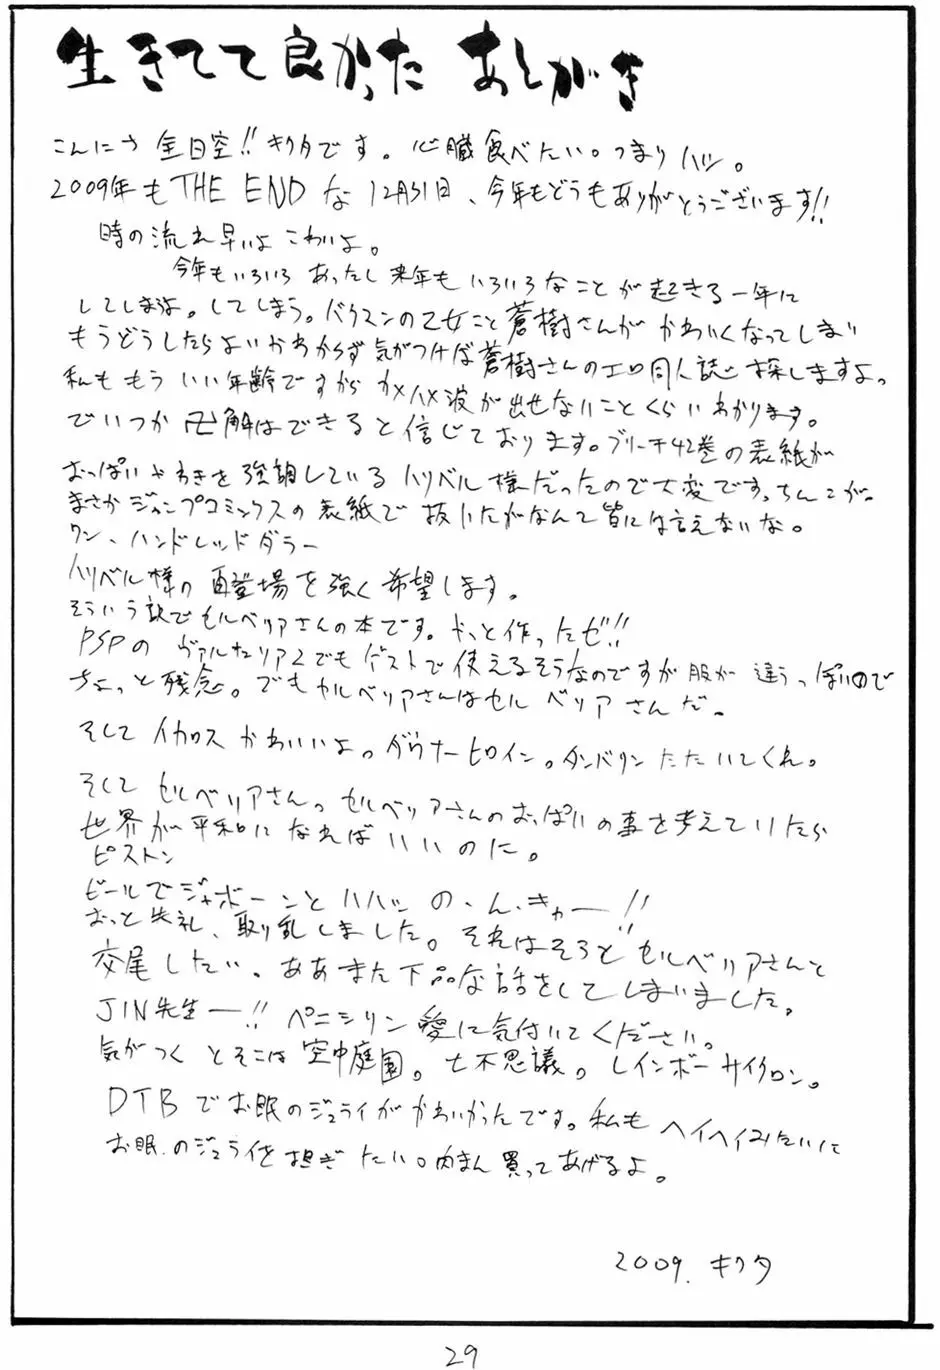 生きてて良かった あとがき
こんにちわ 全日空!! キクタです。心臓食べたい。つまりハツ。
2009年もTHE ENDな12月31日、今年もどうもありがとうございます!!
時の流れ早いよ こわいよ。
今年もいろいろ あったし来年も いろいろなことが起きる一年に
してしまうよ。してしまう。バクマンの乙女こと蒼樹さんが かわいくなってしまい
もうどうしたらよいかわからず気がつけば蒼樹さんのエロ同人誌を探しますよ。
私ももう いい年齢ですから カメハメ波が出せないことくらいわかります。
でいつか 卍解はできると信じております。ブリーチ42巻の表紙が
おっぱいやわきを強調しているハリベル様だったので大変です。ちんこが。
まさかジャンプコミックスの表紙で抜いたがなんて皆には言えないな。
ワン、ハンドレッドダラー
ハリベル様の再登場を強く希望します。
そういう訳でセルベリアさんの本です。やっと作ったぜ!!
PSPの ヴァルキュリア2でもゲストで使えるそうなのですが服が違うっぽいので
ちょっと残念。でもセルベリアさんはセルベリアさんだ。
そして イカロス かわいいよ。ダウナーヒロイン。タンバリンたたいてくれ。
そして セルベリアさん。セルベリアさんのおっぱいの事を考えていたら
世界が平和になればいいのに。
ピストン
ビールでジャボーンと ハハッ の、ん、きゃー!!
おっと失礼、取り乱しました。それはそうとセルベリアさんと
交尾したい。ああまた下品な話をしてしまいました。
JIN先生ー!! ペニシリン愛に気付いてください。
気がつくとそこは空中庭園。七不思議。レインボーサイクロン。
DTBでお眠のジュライがかわいかったです。私も ヘイヘイみたいに
お眠のジュライを担ぎたい。肉まん買ってあげるよ。
2009. キクタ
29